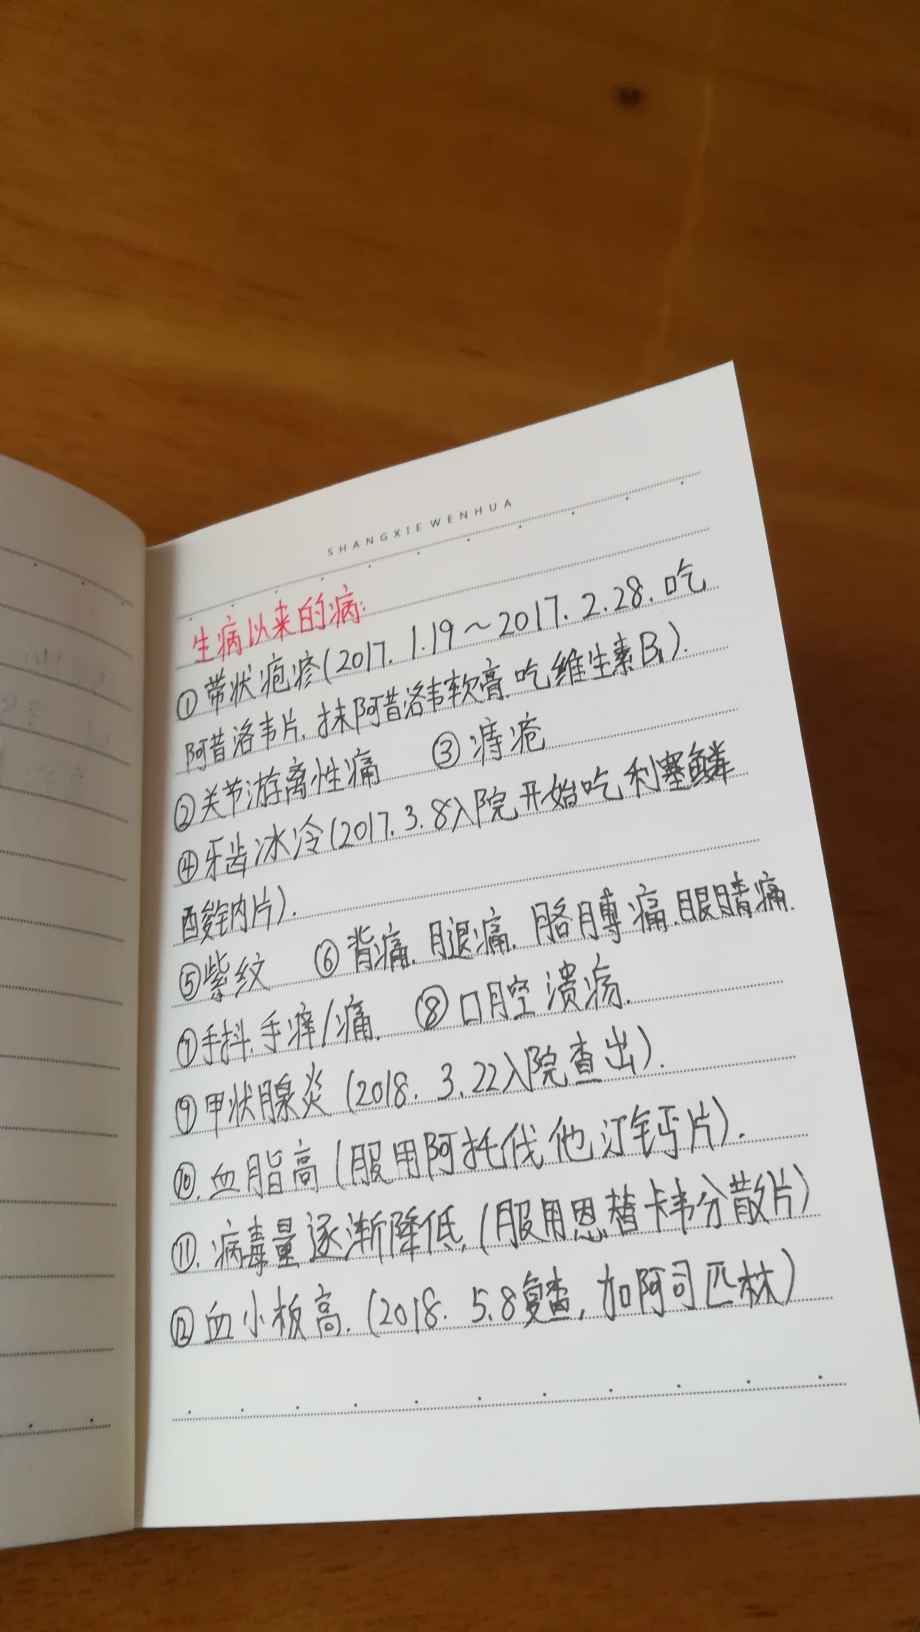 SHANGXIEWENHUA
生病以来的病:
①带状疱疹(2017.1.19～2017.2.28.吃
阿昔洛韦片.抹阿昔洛韦软膏.吃维生素B₁).
②关节游离性痛 ③痔疮
④牙齿冰冷(2017.3.8入院开始吃利塞鳞
酸钠片).
⑤紫纹 ⑥背痛.腿痛.胳膊痛.眼睛痛.
⑦手抖.手痒/痛. ⑧口腔溃疡.
⑨甲状腺炎(2018.3.22入院查出).
⑩.血脂高(服用阿托伐他汀钙片).
⑪.病毒量逐渐降低.(服用恩替卡韦分散片)
⑫血小板高.(2018.5.8复查,加阿司匹林)